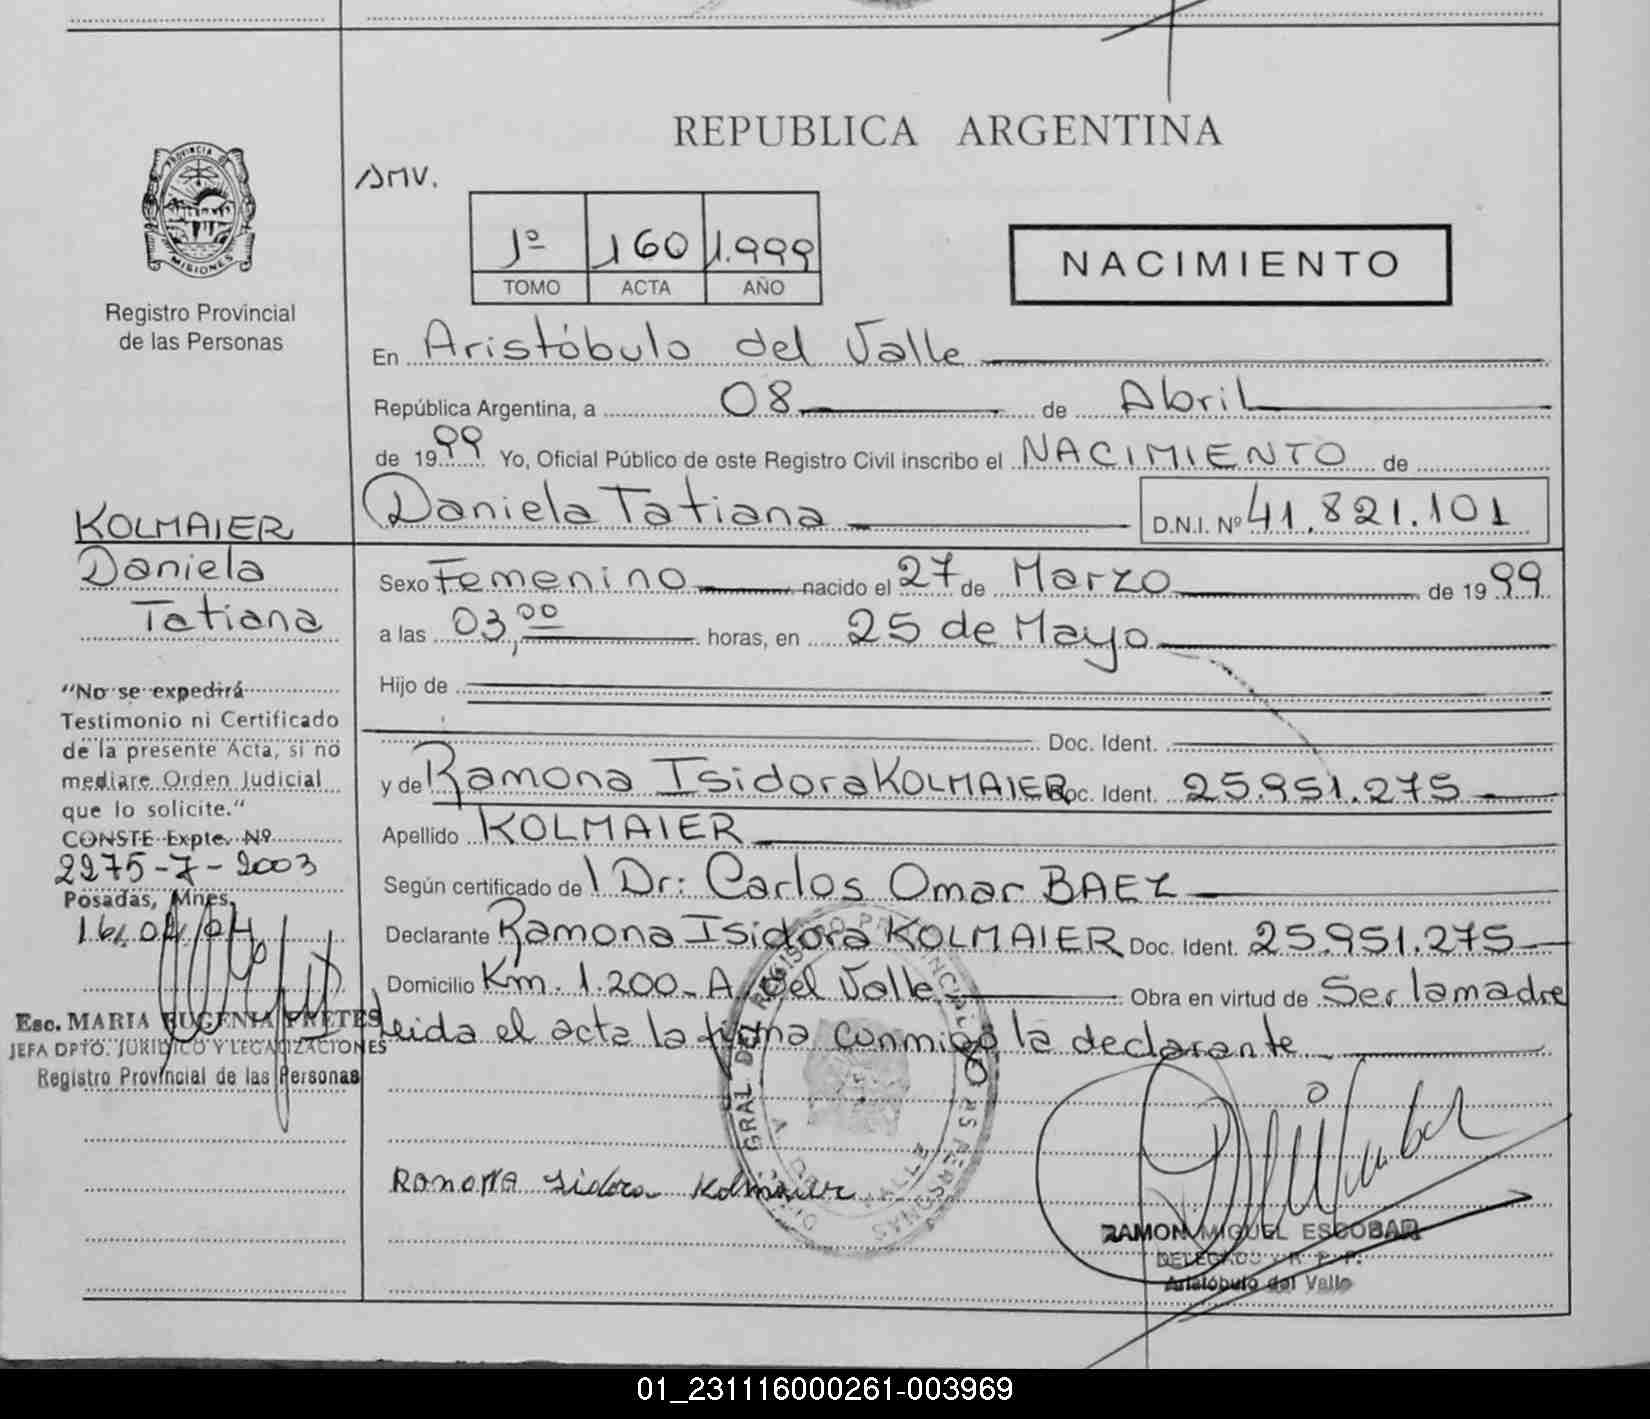 REPUBLICA ARGENTINA
PROVINCIA DE
MISIONES
Registro Provincial
de las Personas
SMV.
1º 160 1.999
TOMO ACTA AÑO
NACIMIENTO
En Aristóbulo del Valle
República Argentina, a 08 de Abril
de 1999 Yo, Oficial Público de este Registro Civil inscribo el NACIMIENTO de
Daniela Tatiana D.N.I. Nº 41.821.101
KOLMAIER
Daniela
Tatiana
Sexo Femenino nacido el 27 de Marzo de 1999
a las 03,00 horas, en 25 de Mayo
Hijo de
Doc. Ident.
y de Ramona Isidora KOLMAIER Doc. Ident. 25.951.275
Apellido KOLMAIER
Según certificado de 1 Dr: Carlos Omar BAEZ
Declarante Ramona Isidora KOLMAIER Doc. Ident. 25.951.275
Domicilio Km. 1.200 - A. del Valle Obra en virtud de Ser la madre
Leida el acta la firma conmigo la declarante
"No se expedirá
Testimonio ni Certificado
de la presente Acta, si no
mediare Orden Judicial
que lo solicite."
CONSTE Expte. Nº
2275-7-2003
Posadas, Mnes.
16/04/04
Esc. MARIA EUGENIA PRETES
JEFA DPTO. JURIDICO Y LEGALIZACIONES
Registro Provincial de las Personas
GRAL DEL REGISTRO PROVINCIAL DE LAS PERSONAS
A. DEL VALLE
Ramona Isidora Kolmaier
RAMON MIGUEL ESCOBAR
DELEGADO R. P. P.
Aristóbulo del Valle
01_231116000261-003969